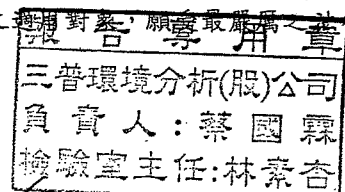 對象，願
最嚴厲之
報告專用章
三普環境分析(股)公司
負責人:蔡國霖
檢驗室主任:林素杏